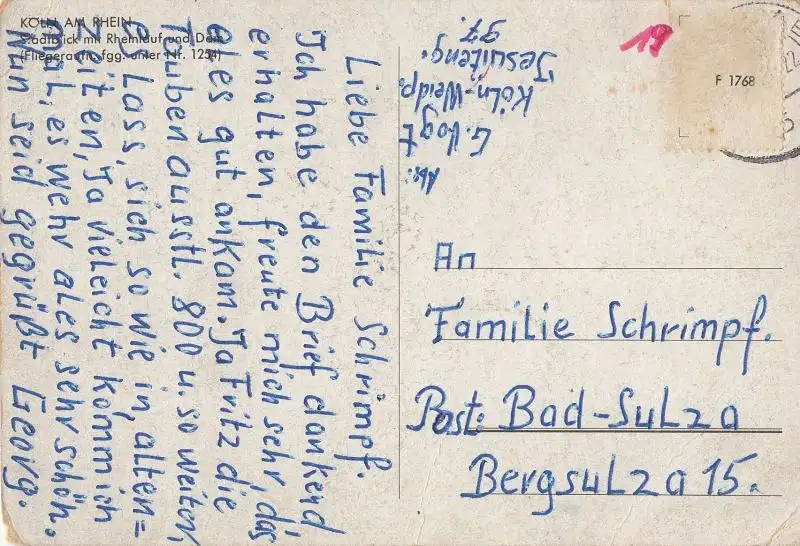 KÖLN AM RHEIN
Stadtblick mit Rheinlauf und Dom
(Fliegeraufn. fgg. unter Nr. 1254)
Liebe Familie Schrimpf.
Ich habe den Brief dankend
erhalten, freute mich sehr, das
ales gut ankam. Ja Fritz die
Taubenausstl. 800 u. so weiter,
es Lass, sich so wie in, alten=
Zeiten, Ja vieleicht komm ich
mal, es wehr ales sehr schön.
Nun seid gegrüßt Georg.
Abs:
G. Vogt
Köln-Weidp.
Jesuiteng.
97.
19
F 1768
22
An
Familie Schrimpf.
Post: Bad-Sulza
Bergsulza 15.